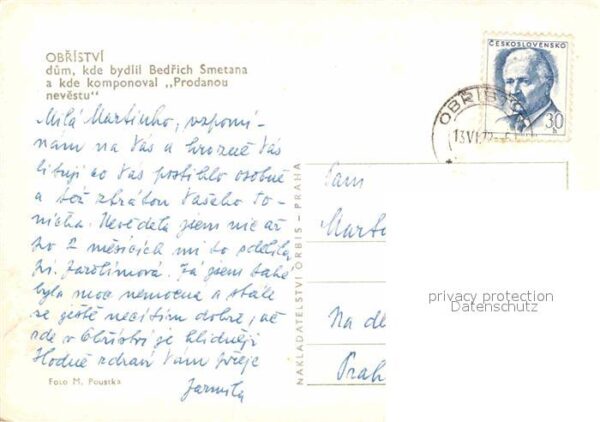 OBŘÍSTVÍ
dům, kde bydlil Bedřich Smetana
a kde komponoval „Prodanou
nevěstu"
Milá Martinko, vzpomí-
nám na Vás a hrozně Vás
lituji co Vás postihlo osobně
a též ztrátou Vašeho To-
níčka. Nevěděla jsem nic až
po 2 měsících mi to sdělila
Jarolímová. Já jsem také
byla moc nemocna a stále
se ještě necítím dobře, ač
zde v Obříství je klidněji
Hodně zdraví Vám přeje
Jarmila
Foto M. Poustka
NAKLADATELSTVÍ ORBIS - PRAHA
ČESKOSLOVENSKO
30
h
OBŘÍSTVÍ
13.VI.72
Paní
Mart
Na
Prah
privacy protection
Datenschutz